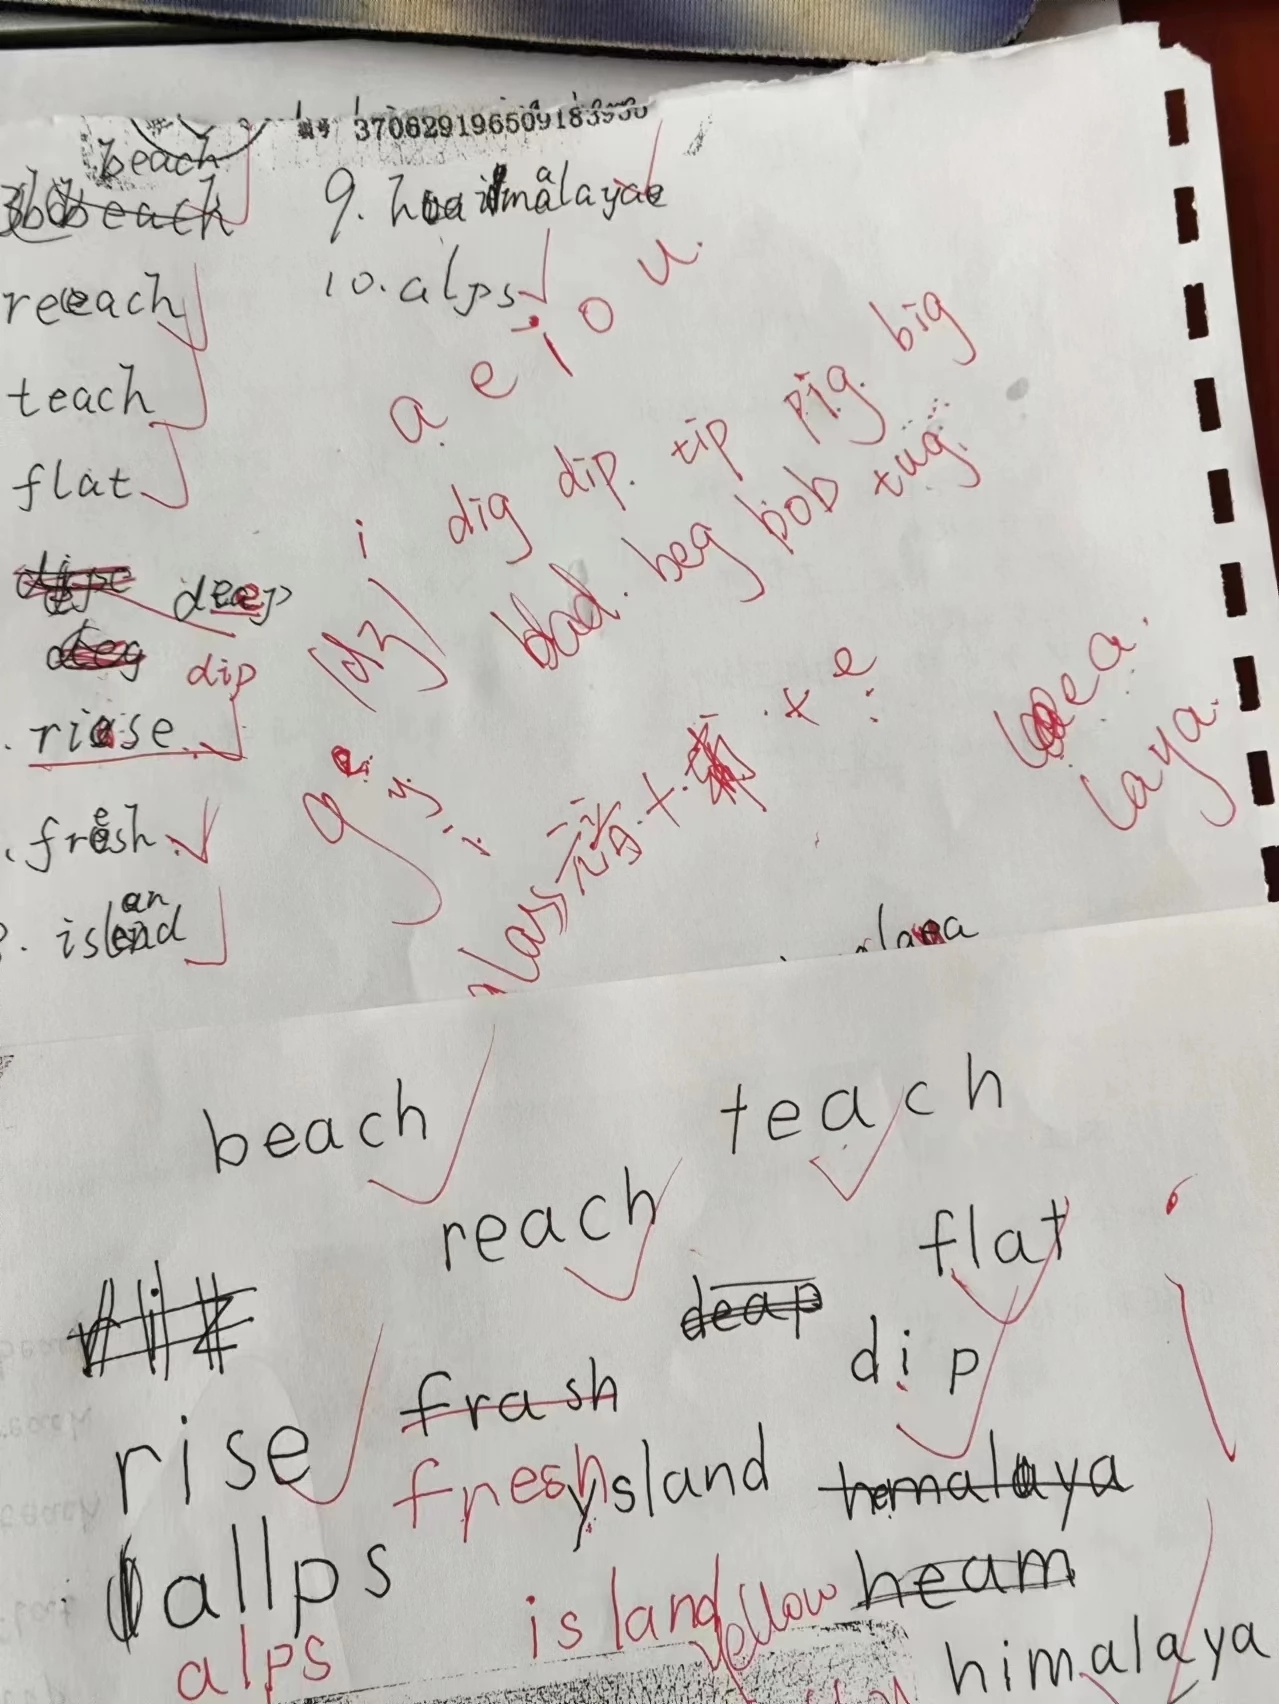 beach
beach
9. himalaya
reach
10. alps
teach
a e i o u.
flat
i dig dip. tip pig. big
bad. beg bob tug.
deep
dip
rise
fresh
元音 + 辅 + e
laya.
island
beach
teach
reach
flat
deap
dip
rise
frash
fresh
ysland
hmalaya
allps
island
yellow
heam
alps
himalaya